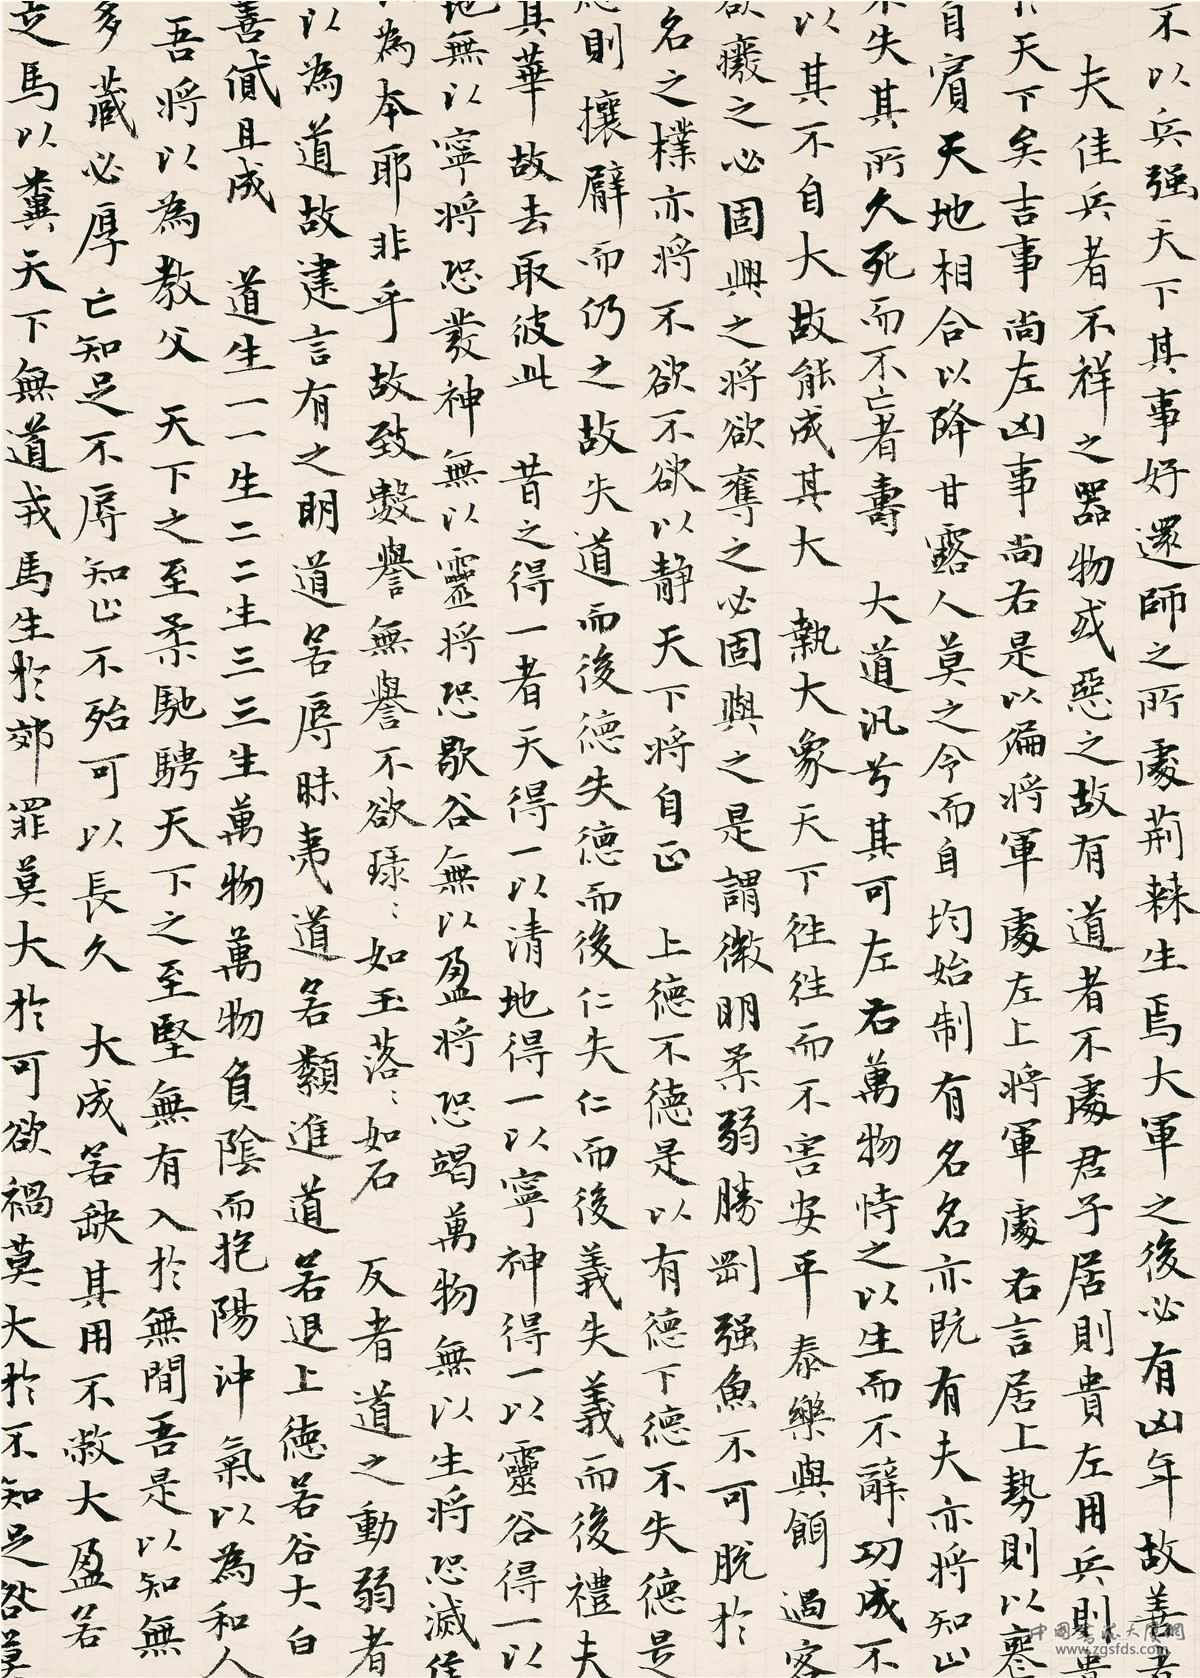 不以兵强天下其事好還師之所處荊棘生焉大軍之後必有凶年故善者
夫佳兵者不祥之器物或惡之故有道者不處君子居則貴左用兵則貴
天下矣吉事尚左凶事尚右是以偏將軍處左上將軍處右言居上勢則以喪
自賓天地相合以降甘露人莫之令而自均始制有名名亦既有夫亦將知止
不失其所久死而不亡者壽 大道汎兮其可左右萬物恃之以生而不辭功成不
以其不自大故能成其大 執大象天下往往而不害安平泰樂與餌過客
欲癈之必固興之將欲奪之必固與之是謂微明柔弱勝剛强魚不可脫於
名之樸亦將不欲不欲以静天下將自正 上德不德是以有德下德不失德是
應則攘臂而仍之故失道而後德失德而後仁失仁而後義失義而後禮夫
其華故去取彼此 昔之得一者天得一以清地得一以寧神得一以靈谷得一以
地無以寧將恐發神無以靈將恐歇谷無以盈將恐竭萬物無以生將恐滅侯
為本耶非乎故致數譽無譽不欲琭〻如玉落〻如石 反者道之動弱者
以為道故建言有之明道若辱昧夷道若纇進道若退上德若谷大白
善貸且成 道生一一生二二生三三生萬物萬物負陰而抱陽沖氣以為和人
吾將以為教父 天下之至柔馳騁天下之至堅無有入於無間吾是以知無
多藏必厚亡知足不辱知止不殆可以長久 大成若缺其用不敝大盈若
走馬以糞天下無道戎馬生於郊罪莫大於可欲禍莫大於不知足咎莫
www.zgsfds.com